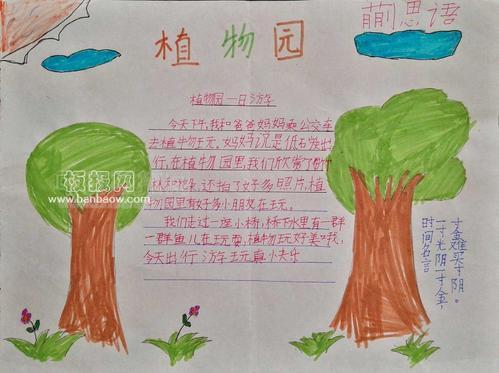 植物园
萠思语
植物园一日游
今天下午,我和爸爸妈妈乘公交车
去植物玩,妈妈说是低石炭出
行,在植物园里,我们欣赏了
林和桃,还拍了好多照片,植
物园里有好多小朋友在玩。
我们走过一座小桥,桥下水里有一群
一群鱼儿在玩耍,植物玩好美哦,
今天出行游玩真快乐
板报网
www.banbaow.com
时间名言
一寸光阴一寸金,
寸金难买寸阴。